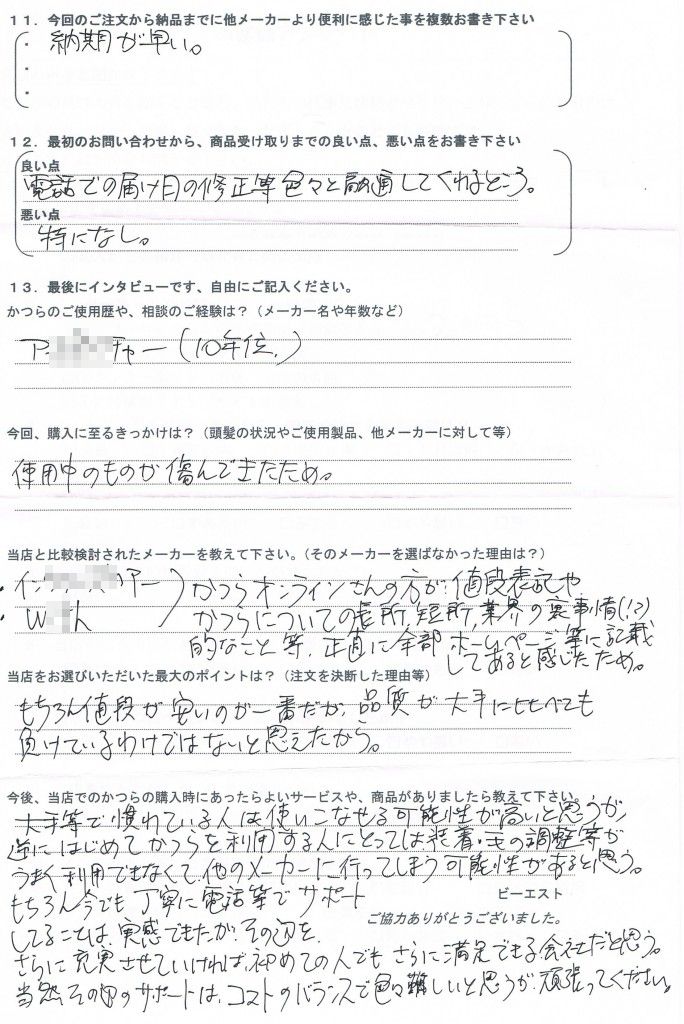 11．今回のご注文から納品までに他メーカーより便利に感じた事を複数お書き下さい
・納期が早い。
・
・
12．最初のお問い合わせから、商品受け取りまでの良い点、悪い点をお書き下さい
良い点
電話での届け日の修正等色々と融通してくれるところ。
悪い点
特になし。
13．最後にインタビューです、自由にご記入ください。
かつらのご使用歴や、相談のご経験は？（メーカー名や年数など）
ア チャー（10年位.）
今回、購入に至るきっかけは？（頭髪の状況やご使用製品、他メーカーに対して等）
使用中のものが傷んできたため。
当店と比較検討されたメーカーを教えて下さい。（そのメーカーを選ばなかった理由は？）
・イ アー
・W h
かつらオンラインさんの方が、値段表記や
かつらについての長所、短所、業界の裏事情(!?)
的なこと等、正直に全部ホームページ等に記載
してあると感じたため。
当店をお選びいただいた最大のポイントは？（注文を決断した理由等）
もちろん値段が安いのが一番だが、品質が大手に比べても
負けているわけではないと思えたから。
今後、当店でのかつらの購入時にあったらよいサービスや、商品がありましたら教えて下さい。
大手等で慣れている人は使いこなせる可能性が高いと思うが、
逆にはじめてかつらを利用する人にとっては装着・毛の調整等が
うまく利用できなくて、他のメーカーに行ってしまう可能性があると思う。
もちろん今でも丁寧に電話等でサポート
ビーエスト
ご協力ありがとうございました。
してることは、実感できたが、その辺を、
さらに充実させていければ、初めての人でもさらに満足できる会社だと思う。
当然その辺のサポートは、コストのバランスで色々難しいと思うが、頑張ってください。